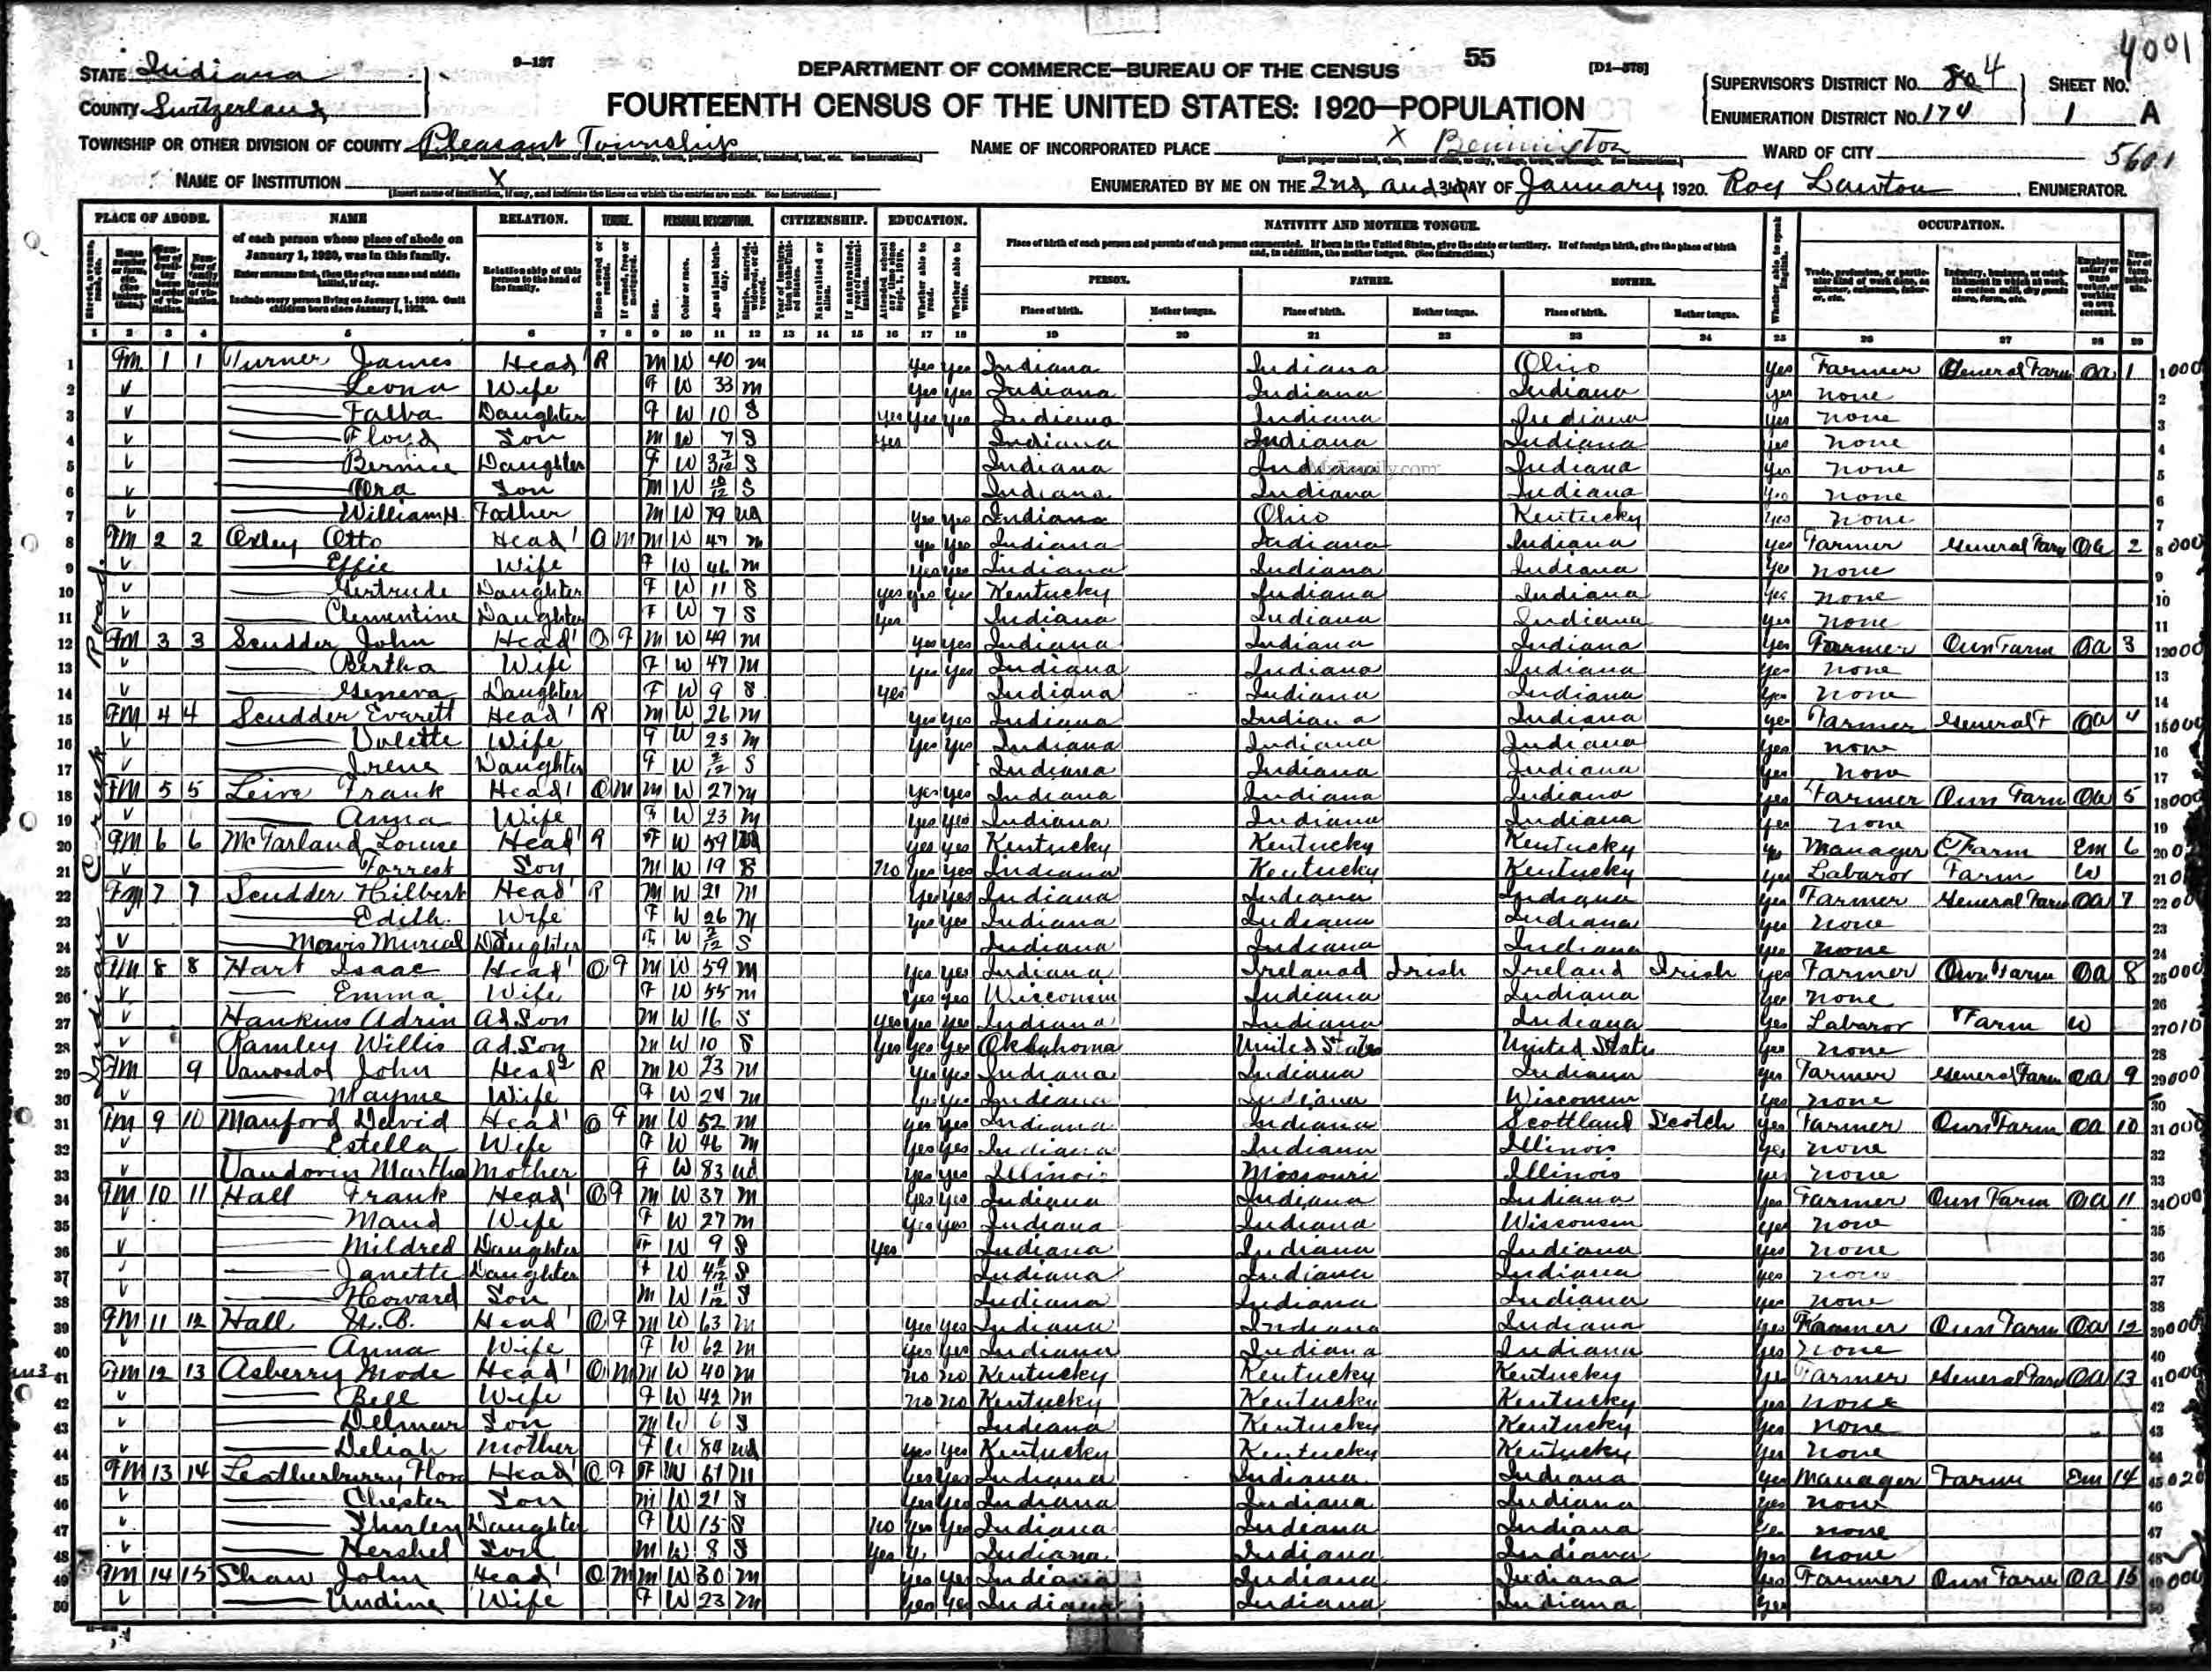 4001
STATE Indiana
9-137
DEPARTMENT OF COMMERCE—BUREAU OF THE CENSUS
55
[D1-578]
SUPERVISOR'S DISTRICT No. 4
SHEET No.
COUNTY Switzerland
FOURTEENTH CENSUS OF THE UNITED STATES: 1920—POPULATION
ENUMERATION DISTRICT No. 174
1 A
TOWNSHIP OR OTHER DIVISION OF COUNTY Pleasant Township
NAME OF INCORPORATED PLACE X Bennington
WARD OF CITY
5601
NAME OF INSTITUTION X
[Insert name of institution, if any, and indicate the lines on which the entries are made. See instructions.]
ENUMERATED BY ME ON THE 2nd and 3rd DAY OF January, 1920. Roy Lawton ENUMERATOR.
PLACE OF ABODE. NAME RELATION. TENURE. PERSONAL DESCRIPTION. CITIZENSHIP. EDUCATION. NATIVITY AND MOTHER TONGUE. OCCUPATION.
of each person whose place of abode on January 1, 1920, was in this family.
Enter surname first, then the given name and middle initial, if any.
Include every person living on January 1, 1920. Omit children born since January 1, 1920.
Relationship of this person to the head of the family.
Place of birth of each person and parents of each person enumerated. If born in the United States, give the state or territory. If of foreign birth, give the place of birth and, in addition, the mother tongue. (See instructions.)
PERSON. FATHER. MOTHER.
Place of birth. Mother tongue. Place of birth. Mother tongue. Place of birth. Mother tongue.
1 2 3 4 5 6 7 8 9 10 11 12 13 14 15 16 17 18 19 20 21 22 23 24 25 26 27 28 29
Indian Creek Road
1 Fm 1 1 Turner James Head R M W 40 M yes yes Indiana Indiana Ohio yes Farmer General Farm OA 1
2 Leona Wife F W 33 M yes yes Indiana Indiana Indiana yes none
3 Falba Daughter F W 10 S yes yes yes Indiana Indiana Indiana yes none
4 Floyd Son M W 7 S yes Indiana Indiana Indiana yes none
5 Bernice Daughter F W 3 S Indiana Indiana Indiana yes none
6 Ora Son M W 10/12 S Indiana Indiana Indiana yes none
7 William H. Father M W 79 wd yes yes Indiana Ohio Kentucky yes none
8 Fm 2 2 Oxley Otto Head O M M W 47 M yes yes Indiana Indiana Indiana yes Farmer General Farm OA 2
9 Effie Wife F W 46 M yes yes Indiana Indiana Indiana yes none
10 Gertrude Daughter F W 11 S yes yes yes Kentucky Indiana Indiana yes none
11 Clementine Daughter F W 7 S yes Indiana Indiana Indiana yes none
12 Fm 3 3 Scudder John Head O F M W 49 M yes yes Indiana Indiana Indiana yes Farmer Own Farm OA 3
13 Bertha Wife F W 47 M yes yes Indiana Indiana Indiana yes none
14 Geneva Daughter F W 9 S yes Indiana Indiana Indiana yes none
15 Fm 4 4 Scudder Everett Head R M W 26 M yes yes Indiana Indiana Indiana yes Farmer General F OA 4
16 Volette Wife F W 23 M yes yes Indiana Indiana Indiana yes none
17 Irene Daughter F W S Indiana Indiana Indiana yes none
18 Fm 5 5 Frank Head O M M W 27 M yes yes Indiana Indiana Indiana yes Farmer Own Farm OA 5
19 Anna Wife F W 23 M yes yes Indiana Indiana Indiana yes none
20 Fm 6 6 McFarland Louise Head R F W 59 Wd yes yes Kentucky Kentucky Kentucky yes Manager Farm Em 6
21 Forrest Son M W 19 S no yes yes Indiana Kentucky Kentucky yes Labaror Farm W
22 Fm 7 7 Scudder Hilbert Head R M W 21 M yes yes Indiana Indiana Indiana yes Farmer General Farm OA 7
23 Edith Wife F W 26 M yes yes Indiana Indiana Indiana yes none
24 Mavis Murial Daughter F W S Indiana Indiana Indiana yes none
25 Fm 8 8 Hart Isaac Head O F M W 59 M yes yes Indiana Irelanad Irish Ireland Irish yes Farmer Own Farm OA 8
26 Emma Wife F W 55 M yes yes Wisconsin Indiana Indiana yes none
27 Hankins Adrin Ad. Son M W 16 S yes yes yes Indiana Indiana Indiana yes Labaror Farm W
28 Ramley Willis Ad. Son M W 10 S yes yes yes Oklahoma United States United States yes none
29 Fm 9 John Head R M W 23 M yes yes Indiana Indiana Indiana yes Farmer General Farm OA 9
30 Mayme Wife F W 24 M yes yes Indiana Indiana Wisconsin yes none
31 Fm 9 10 Manford David Head O F M W 52 M yes yes Indiana Indiana Scottland Scotch yes Farmer Own Farm OA 10
32 Estella Wife F W 46 M yes yes Indiana Indiana Illinois yes none
33 Martha Mother F W 83 wd yes yes Illinois Missouri Illinois yes none
34 Fm 10 11 Hall Frank Head O F M W 37 M yes yes Indiana Indiana Indiana yes Farmer Own Farm OA 11
35 Maud Wife F W 27 M yes yes Indiana Indiana Wisconsin yes none
36 Mildred Daughter F W 9 S yes Indiana Indiana Indiana yes none
37 Janette Daughter F W 4 S Indiana Indiana Indiana yes none
38 Howard Son M W 1 11/12 S Indiana Indiana Indiana yes none
39 Fm 11 12 Hall Head O F M W 63 M yes yes Indiana Indiana Indiana yes Farmer Own Farm OA 12
40 Anna Wife F W 62 M yes yes Indiana Indiana Indiana yes none
41 Fm 12 13 Asberry Mode Head O M M W 40 M no no Kentucky Kentucky Kentucky yes Farmer General Farm OA 13
42 Bell Wife F W 42 M no no Kentucky Kentucky Kentucky yes none
43 Dellmar Son M W 6 S Indiana Kentucky Kentucky yes none
44 Deliah Mother F W 84 wd yes yes Kentucky Kentucky Kentucky yes none
45 Fm 13 14 Leatherburry Head O F F W 61 yes yes Indiana Indiana Indiana yes Manager Farm Em 14
46 Chester Son M W 21 S yes yes Indiana Indiana Indiana yes none
47 Shirley Daughter F W 15 S no yes yes Indiana Indiana Indiana yes none
48 Hershel Son M W 8 S yes Indiana Indiana Indiana yes none
49 Fm 14 15 Shaw John Head O M M W 30 M yes yes Indiana Indiana Indiana yes Farmer Own Farm OA 15
50 Undine Wife F W 23 M yes yes Indiana Indiana Indiana yes